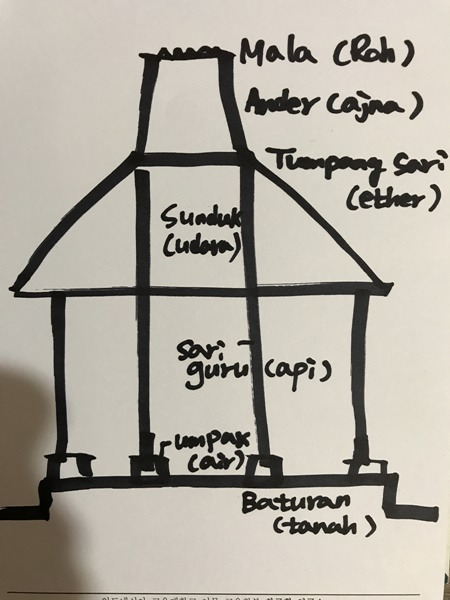 Mala (Roh)
Ander (ajna)
Tumpang Sari
(ether)
Sunduk
(udara)
Sari
guru (api)
umpak
(air)
Baturan
(tanah)